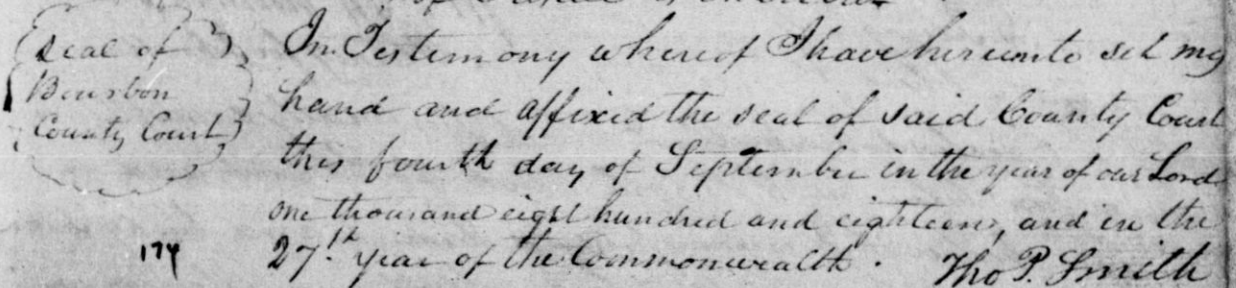 Seal of
Bourbon
County Court
In Testimony whereof I have hereunto set my
hand and affixed the seal of said County Court
this fourth day of September in the year of our Lord
one thousand eight hundred and eighteen, and in the
27th year of the Commonwealth.
Tho P. Smith
174